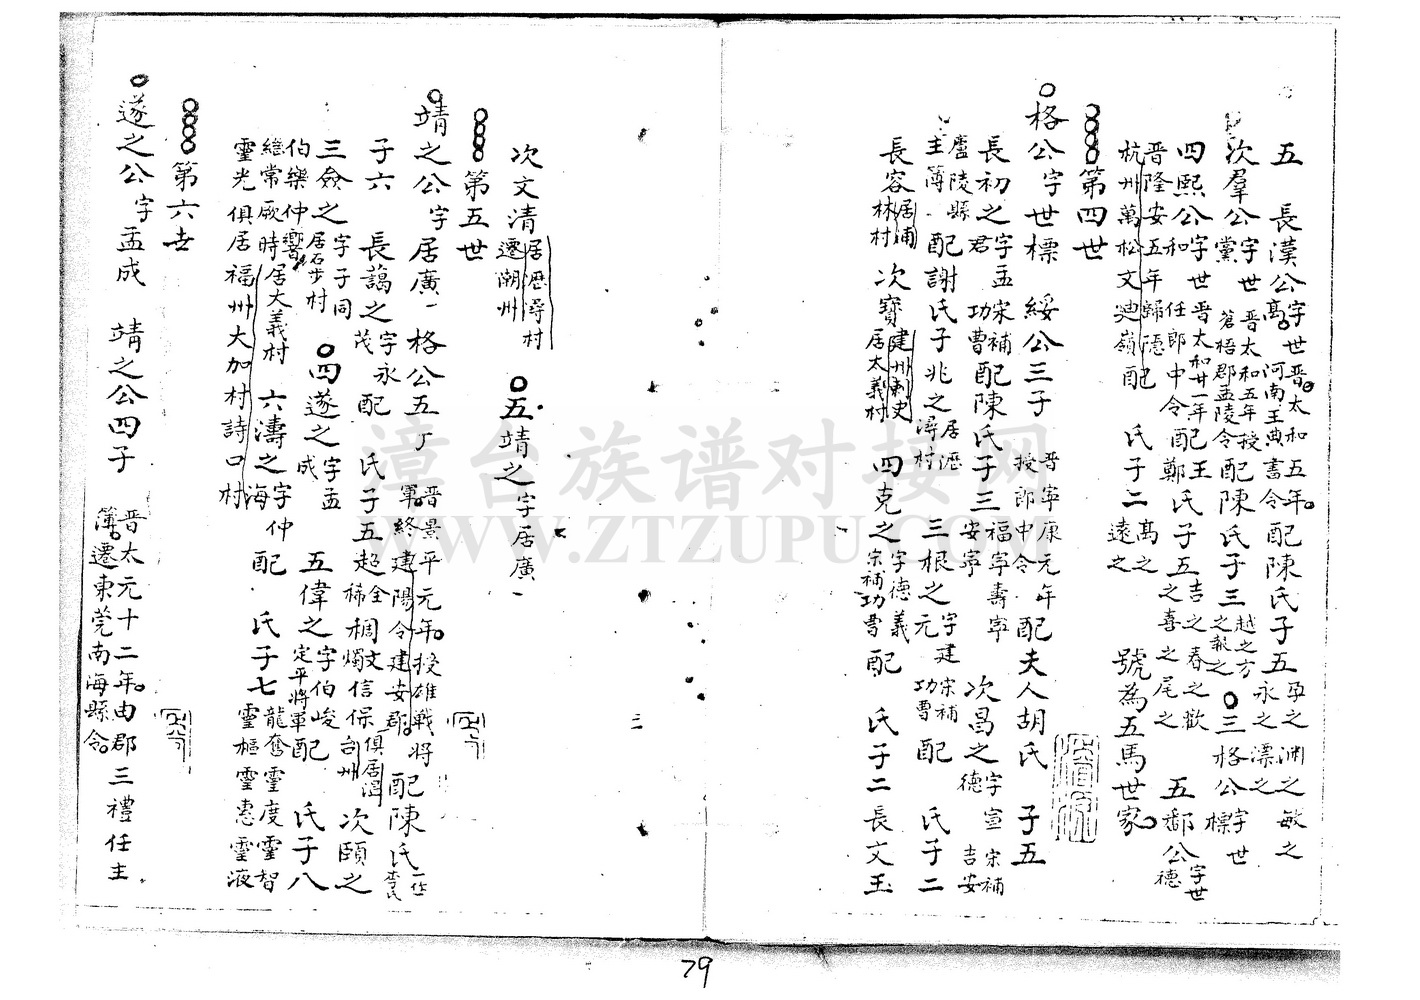 五 長漢公字世高晋太和五年河南王典書令配陳氏子五孕之渊之敏之永之漂之
次羣公字世黨晋太和五年授蒼梧郡孟陵令配陳氏子三越之方之報之 三格公字世標
四熙公字世和晋太和廿一年任郎中令配王鄭氏子五吉之春之歡之喜之尾之 五鄱公字世德
晋隆安五年歸隱杭州萬松文廸嶺配 氏子二高之遠之 號為五馬世家
第四世
格公字世標 綏公三子 晋寧康元年授郎中令配夫人胡氏 子五
長初之字孟君宋補功曹配陳氏子三福寧壽寧安寧 次昌之字宣德宋補吉安
廬陵縣主簿配謝氏子兆之居歷潯村 三根之字建元宋補功曹配 氏子二
長容居浦林村 次寶建州刺史居太義村 四克之字德義宋補功曹配 氏子二長文玉
次文清居歷尋村遷潮州 五靖之字居廣
第五世
靖之公字居廣 格公五丁 晋景平元年授雄戰將軍終建陽令建安郡配陳氏一作李氏
子六 長藹之字永茂配 氏子五超全稀稠文燭信保俱居漳台州 次頤之
三僉之字子同居石步村 四遂之字孟成 五偉之字伯峻定平將軍配 氏子八
伯樂仲響繼常厥時居大義村 六濤之字仲海配 氏子七龍奮靈度靈智靈樞靈憲靈液
靈光俱居福州大加村詩口村
第六世
遂之公字孟成 靖之公四子 晋太元十二年由郡三禮任主
簿遷東莞南海縣令
三
79
漳台族谱对接网
WWW.ZTZUPU.COM